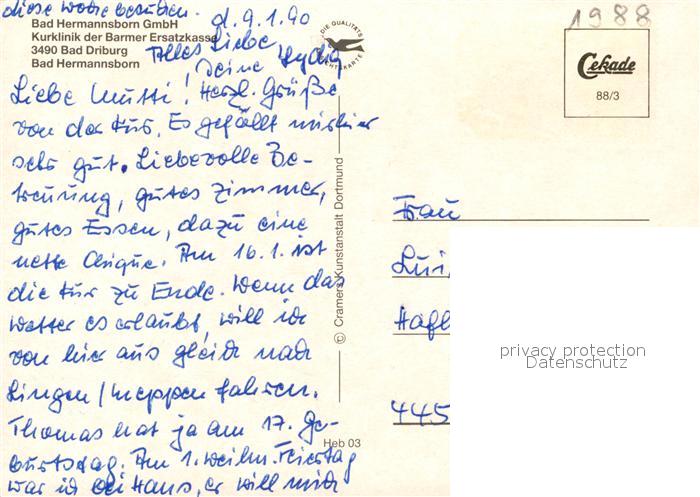 diese Woche besuchen.
d. 9.1.90
1988
Bad Hermannsborn GmbH
Kurklinik der Barmer Ersatzkasse
3490 Bad Driburg
Bad Hermannsborn
Alles Liebe
Deine Lydia
DIE QUALITÄTS
Cekade
88/3
Liebe Mutti! Herzl. Grüße
von der Kur. Es gefällt mir hier
sehr gut. Liebevolle Be-
treuung, gutes Zimmer,
gutes Essen, dazu eine
nette Clique. Am 16.1. ist
die Kur zu Ende. Wenn das
Wetter es erlaubt, will ich
von hier aus gleich nach
Lingen/Meppen fahren.
Thomas hat ja am 17. Ge-
burtstag. Am 1. Weihn. Feiertag
war ich bei Hans, er will mich
© Cramers Kunstanstalt Dortmund
Heb 03
Frau
Lui
Hafl
445
privacy protection
Datenschutz